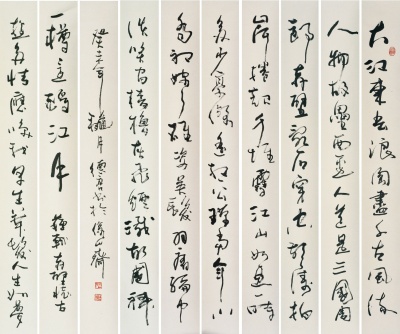 大江東去浪淘盡千古風流
人物故壘西邊人道是三國周
郎赤壁亂石穿空驚濤拍
岸捲起千堆雪江山如畫一時
多少豪傑遙想公瑾當年小
喬初嫁了雄姿英發羽扇綸巾
談笑間檣櫓灰飛煙滅故國神
遊多情應喚我早生華髮人生如夢
一樽還酹江月 蘇軾赤壁懷古
癸未年 穐月 德 於 山齋